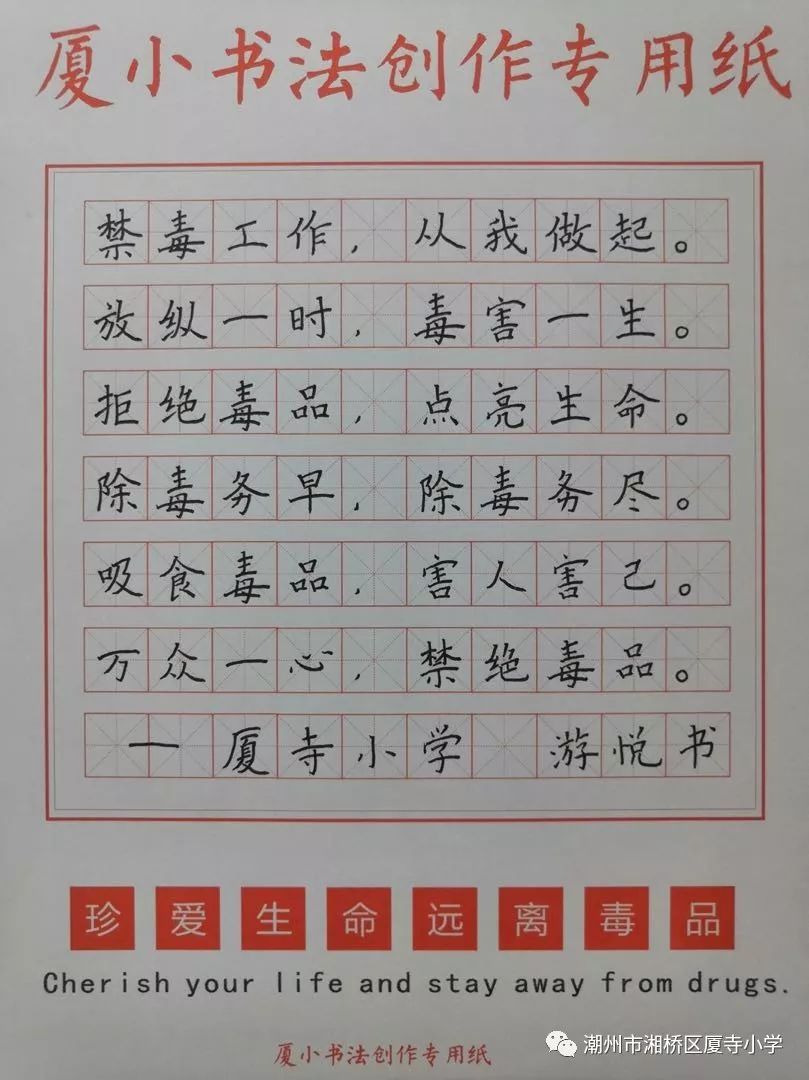 厦小书法创作专用纸
禁毒工作，从我做起。
放纵一时，毒害一生。
拒绝毒品，点亮生命。
除毒务早，除毒务尽。
吸食毒品，害人害己。
万众一心，禁绝毒品。
—厦寺小学 游悦书
珍爱生命远离毒品
Cherish your life and stay away from drugs.
厦小书法创作专用纸
潮州市湘桥区厦寺小学